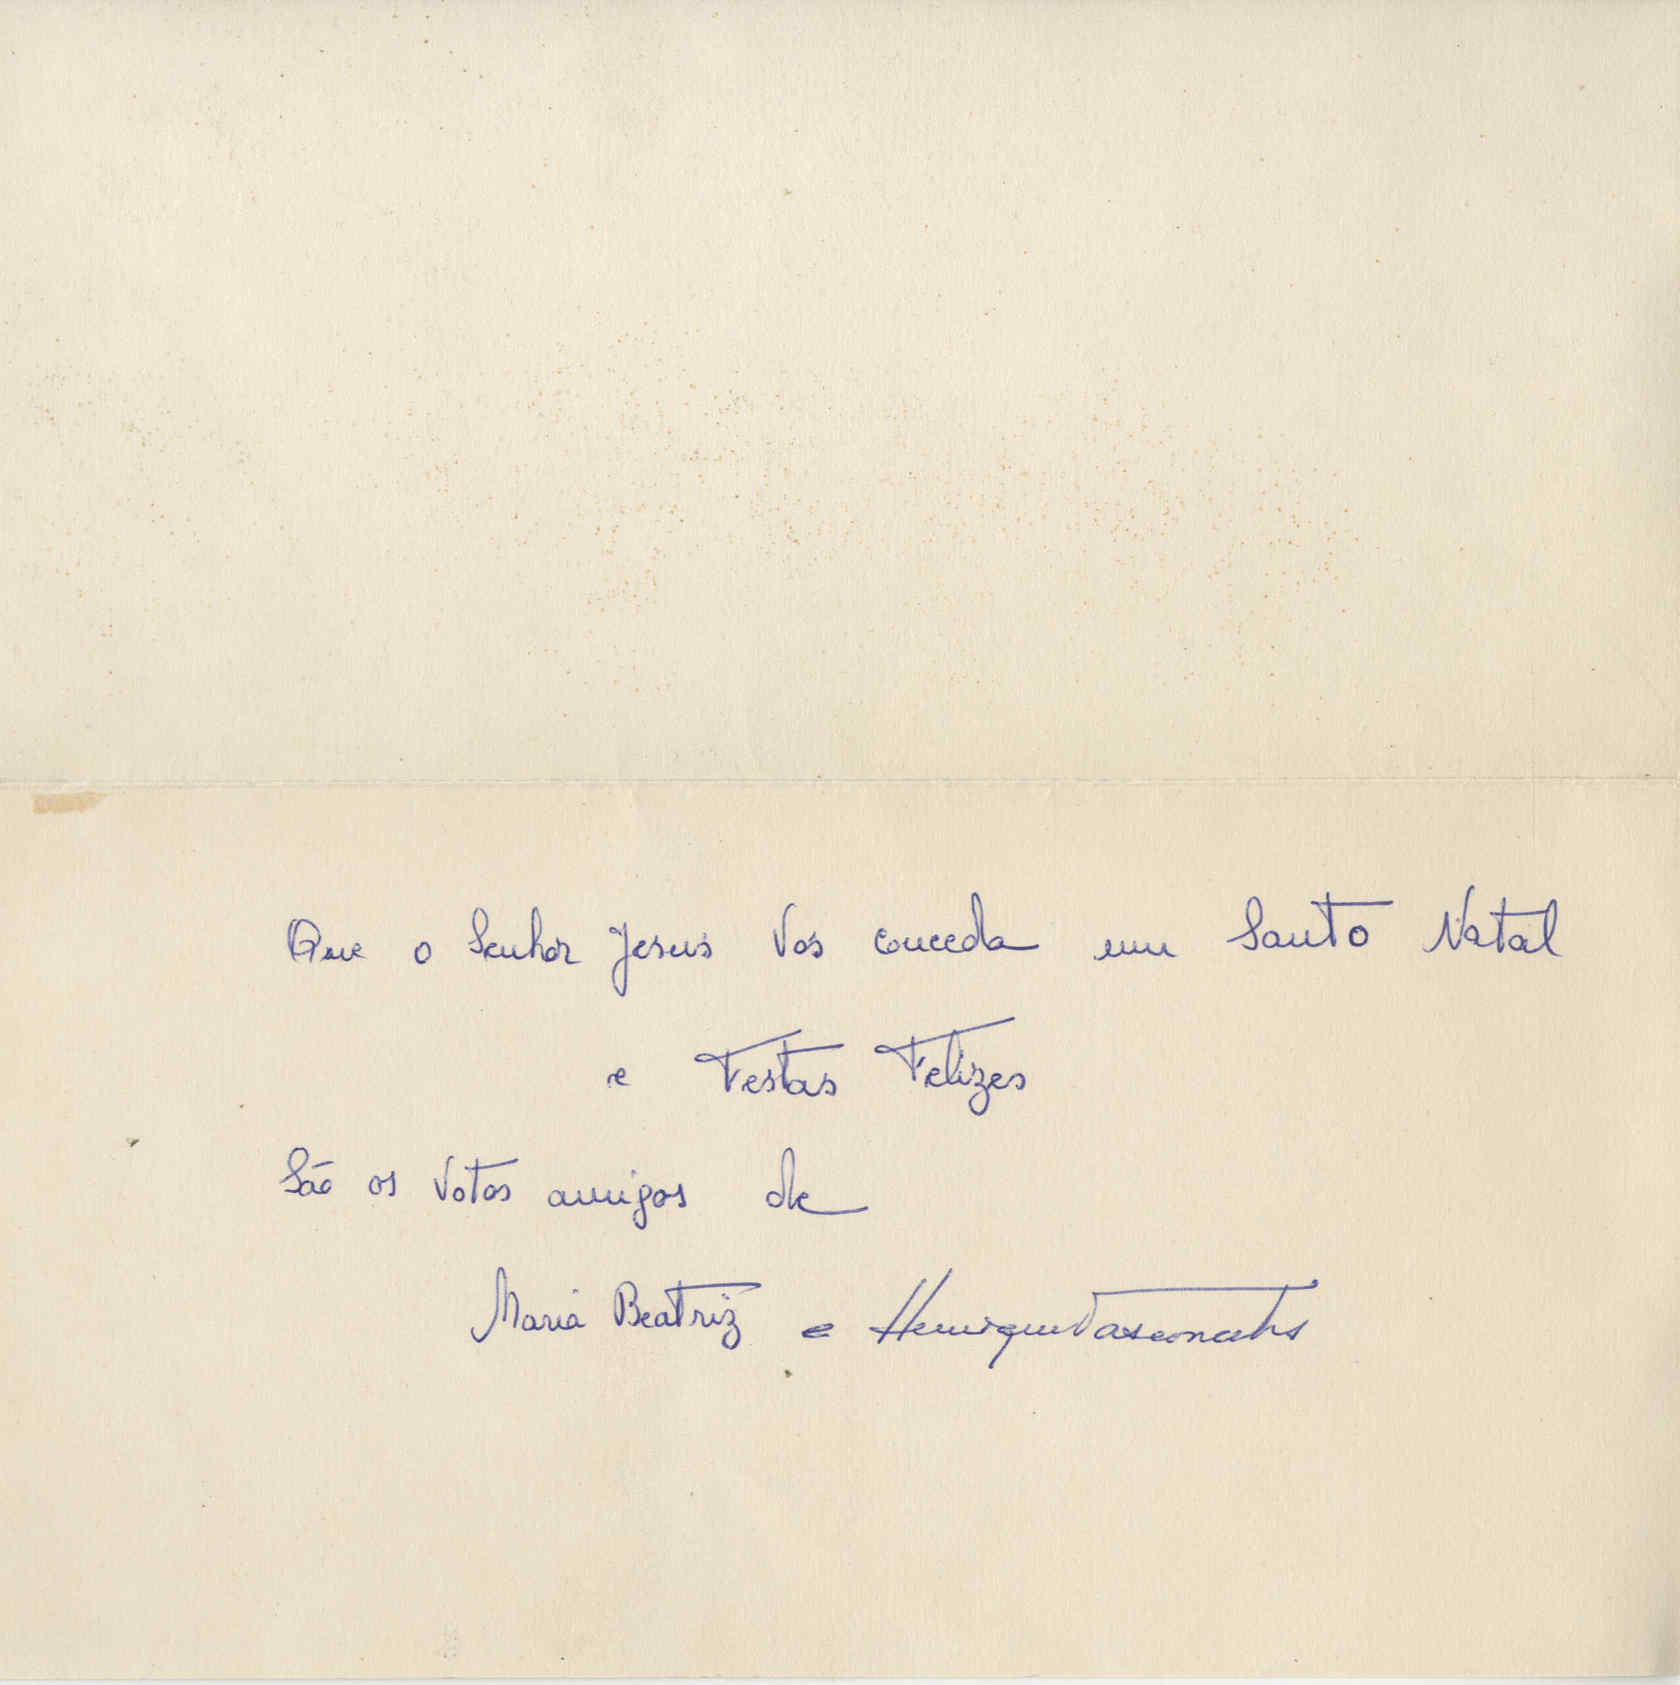 Que o Senhor Jesus Vos conceda um Santo Natal
e Festas Felizes
São os Votos amigos de
Maria Beatriz e Henrique Vasconcelos